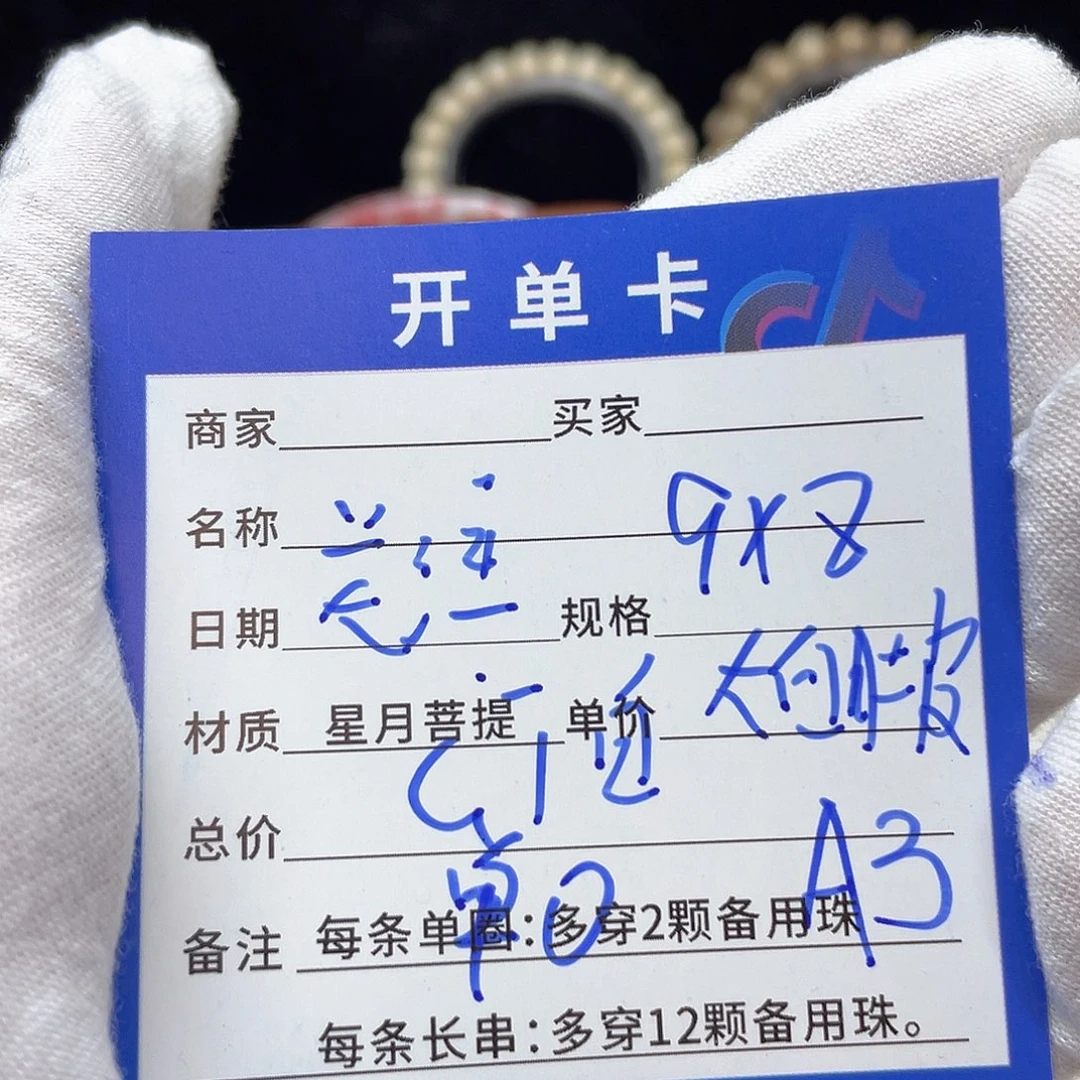 开单卡
商家 买家
名称 9×8
日期 规格
材质 星月菩提 单价
总价
单 A3
备注 每条单圈:多穿2颗备用珠
每条长串:多穿12颗备用珠。